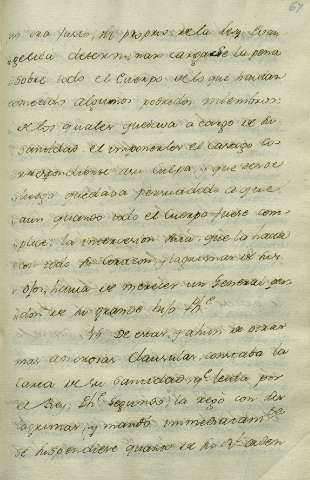 67
no era justo, ni propio de la ley Evan
gelica descri mas cargarle la pena
sobre todo el Cuerpo de los que havian
cometido algunos podridos miembros:
de los quales quedava a cargo de su
Santidad el imponerles el castigo co
rrespondiente a su culpa, y que desde
luego quedasa persuadido a que
aun quando todo el Cuerpo fuese com
plice, la intercesion que la hacia
con todo su corazon, y lagrimas de sus
ojos, havia de merecer un General per
don de su grande hijo Ph.e
14 De estas, y ahun de otras
mas amorosas clausulas, constaba la
carta de su Santidad, q.e leida por
el Rey Ph.e segundo, la regó con sus
lagrimas, y mandó immediatam.te
se suspendiese quanto de su R.l orden